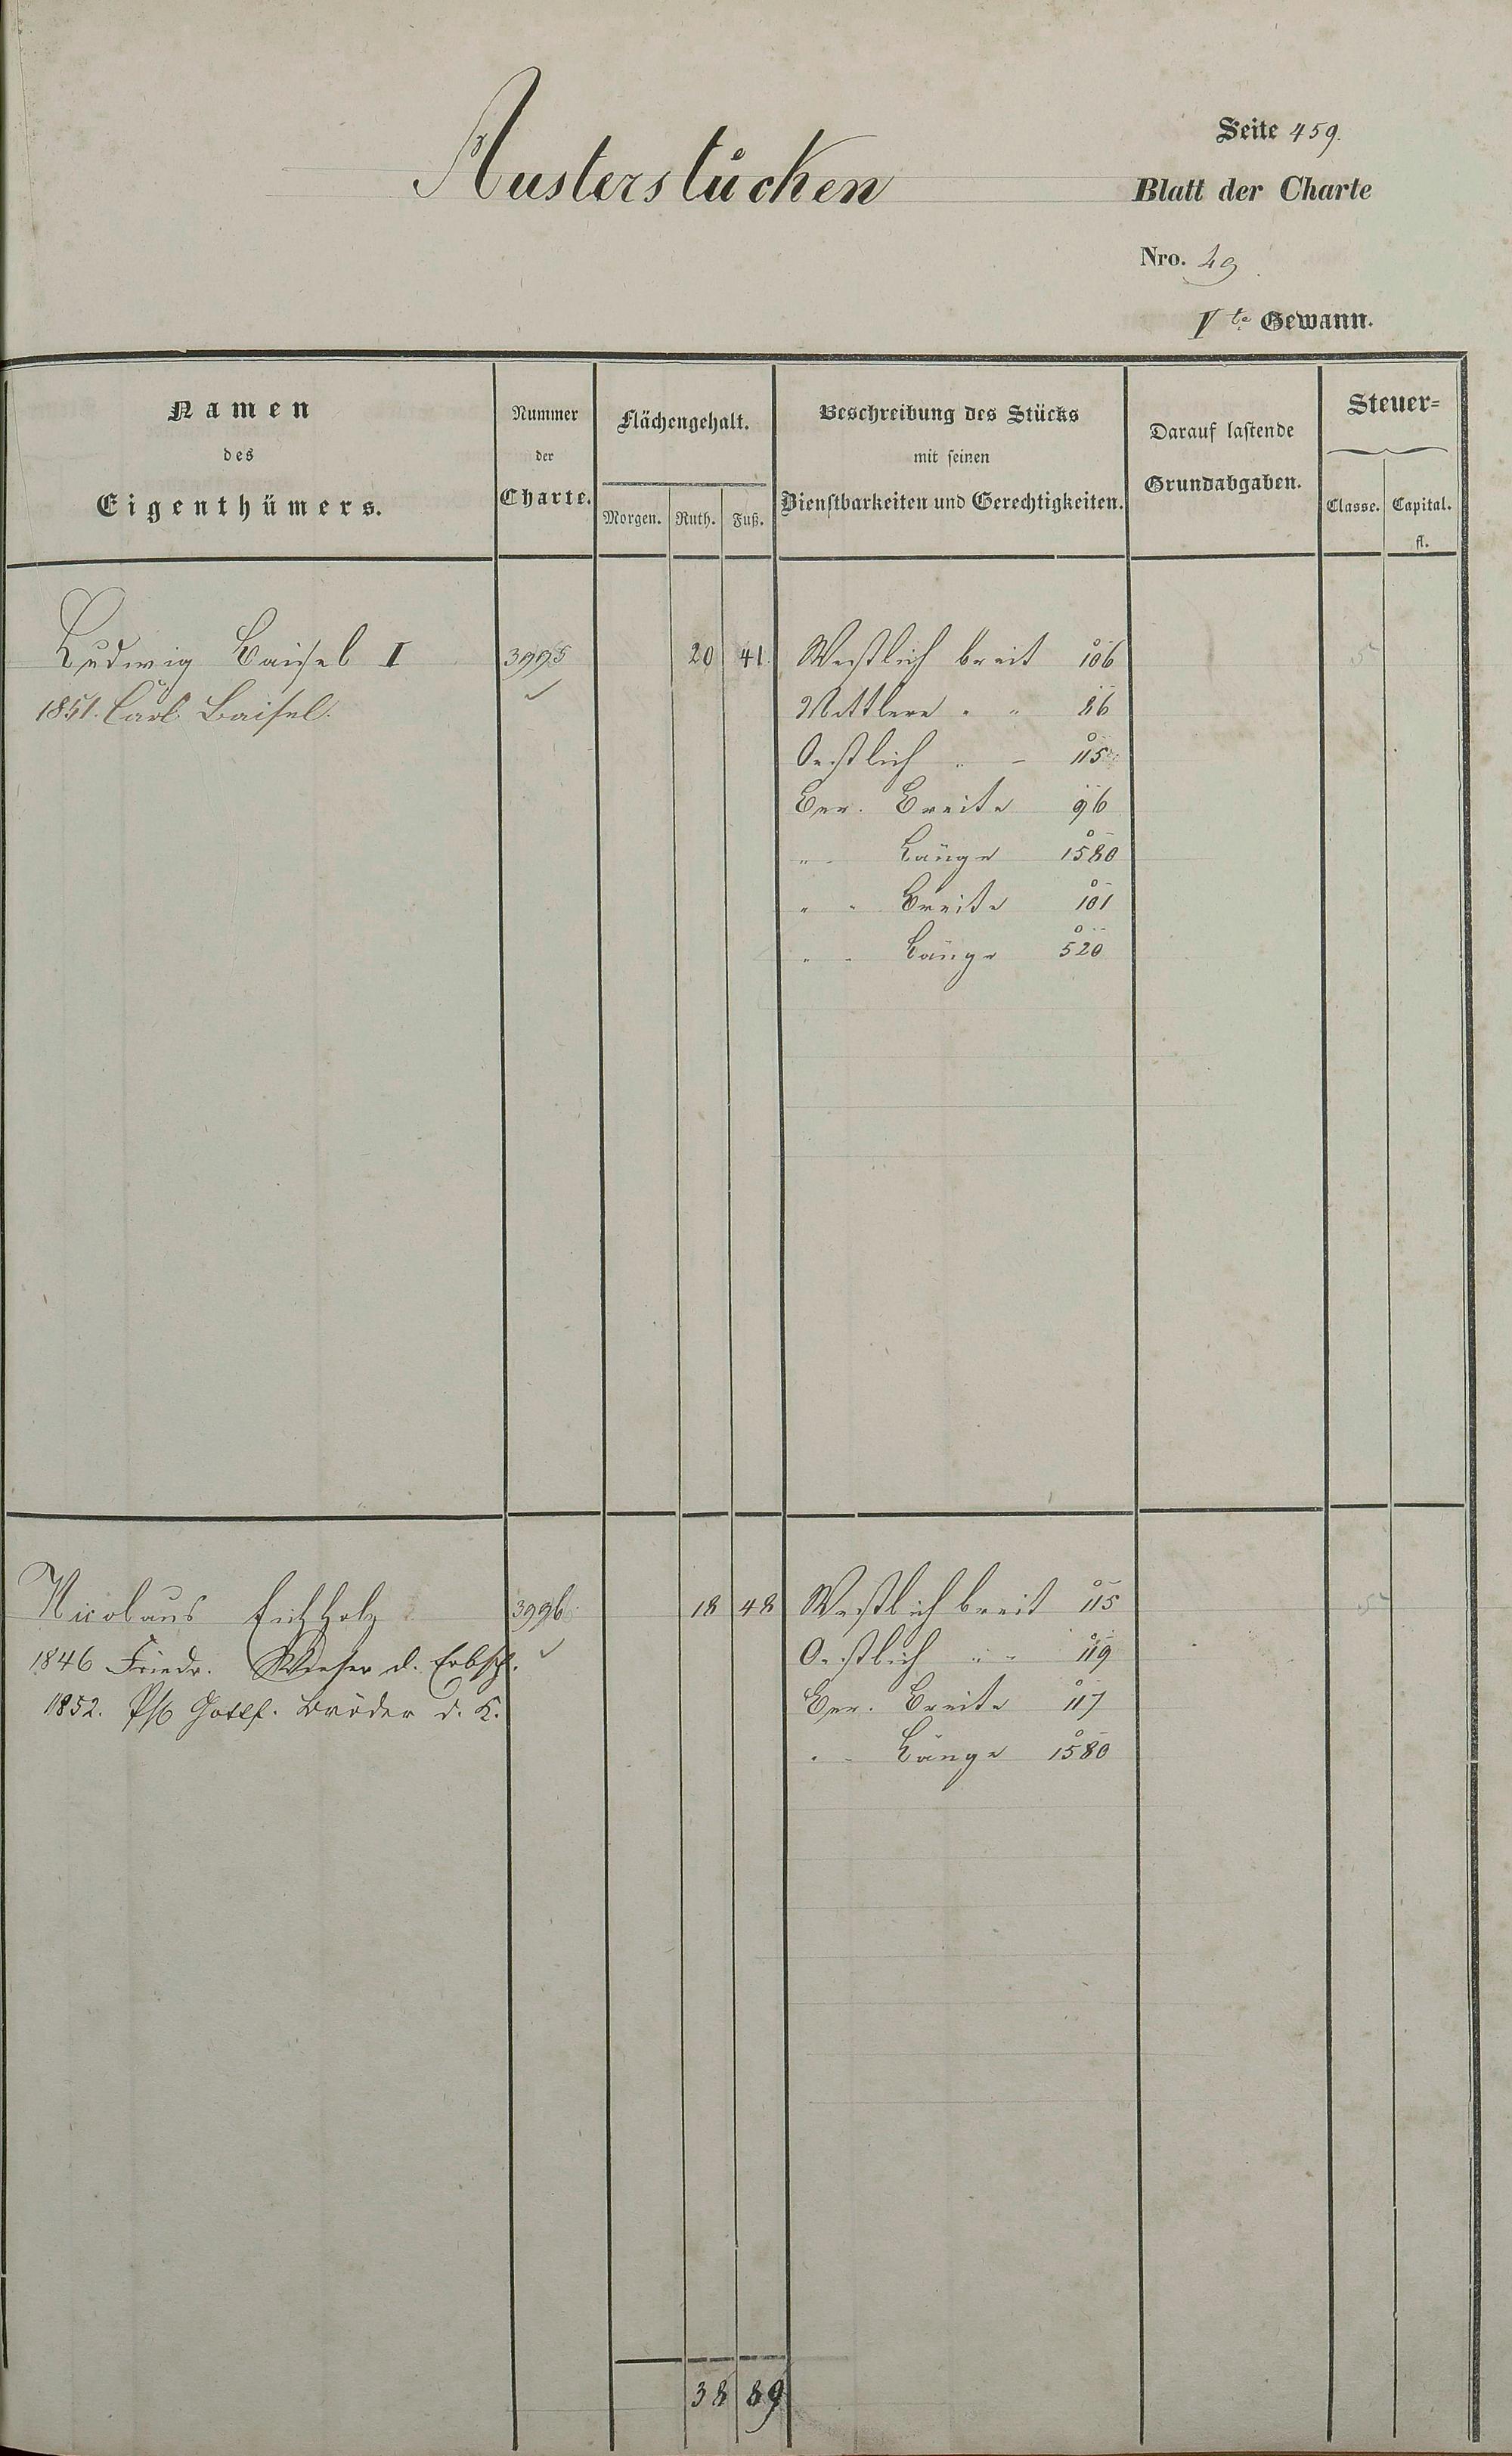 Austerstücken
Seite 459.
Blatt der Charte
Nro. 49
Vte Gewann.
Namen des Eigenthümers.
Nummer der Charte.
Flächengehalt.
Morgen. Ruth. Fuß.
Beschreibung des Stücks mit seinen Dienstbarkeiten und Gerechtigkeiten.
Darauf lastende Grundabgaben.
Steuer=
Classe. Capital. fl.
Ludwig Baisel I 3995 20 41 Westlich breit 106 5
1851. Carl Baisel. Mittlere " " 86
Oestlich " " 115
Ber. Breite 96
" " Länge 1580
" " Breite 101
" " Länge 520
Nicolaus Eichholz 3996 18 48 Westlich breit 115 5
1846 Friedr. d. Erbsch. Oestlich " " 119
1852. Gottf. Bröder d. K. Ber. Breite 117
" " Länge 1580
38 89